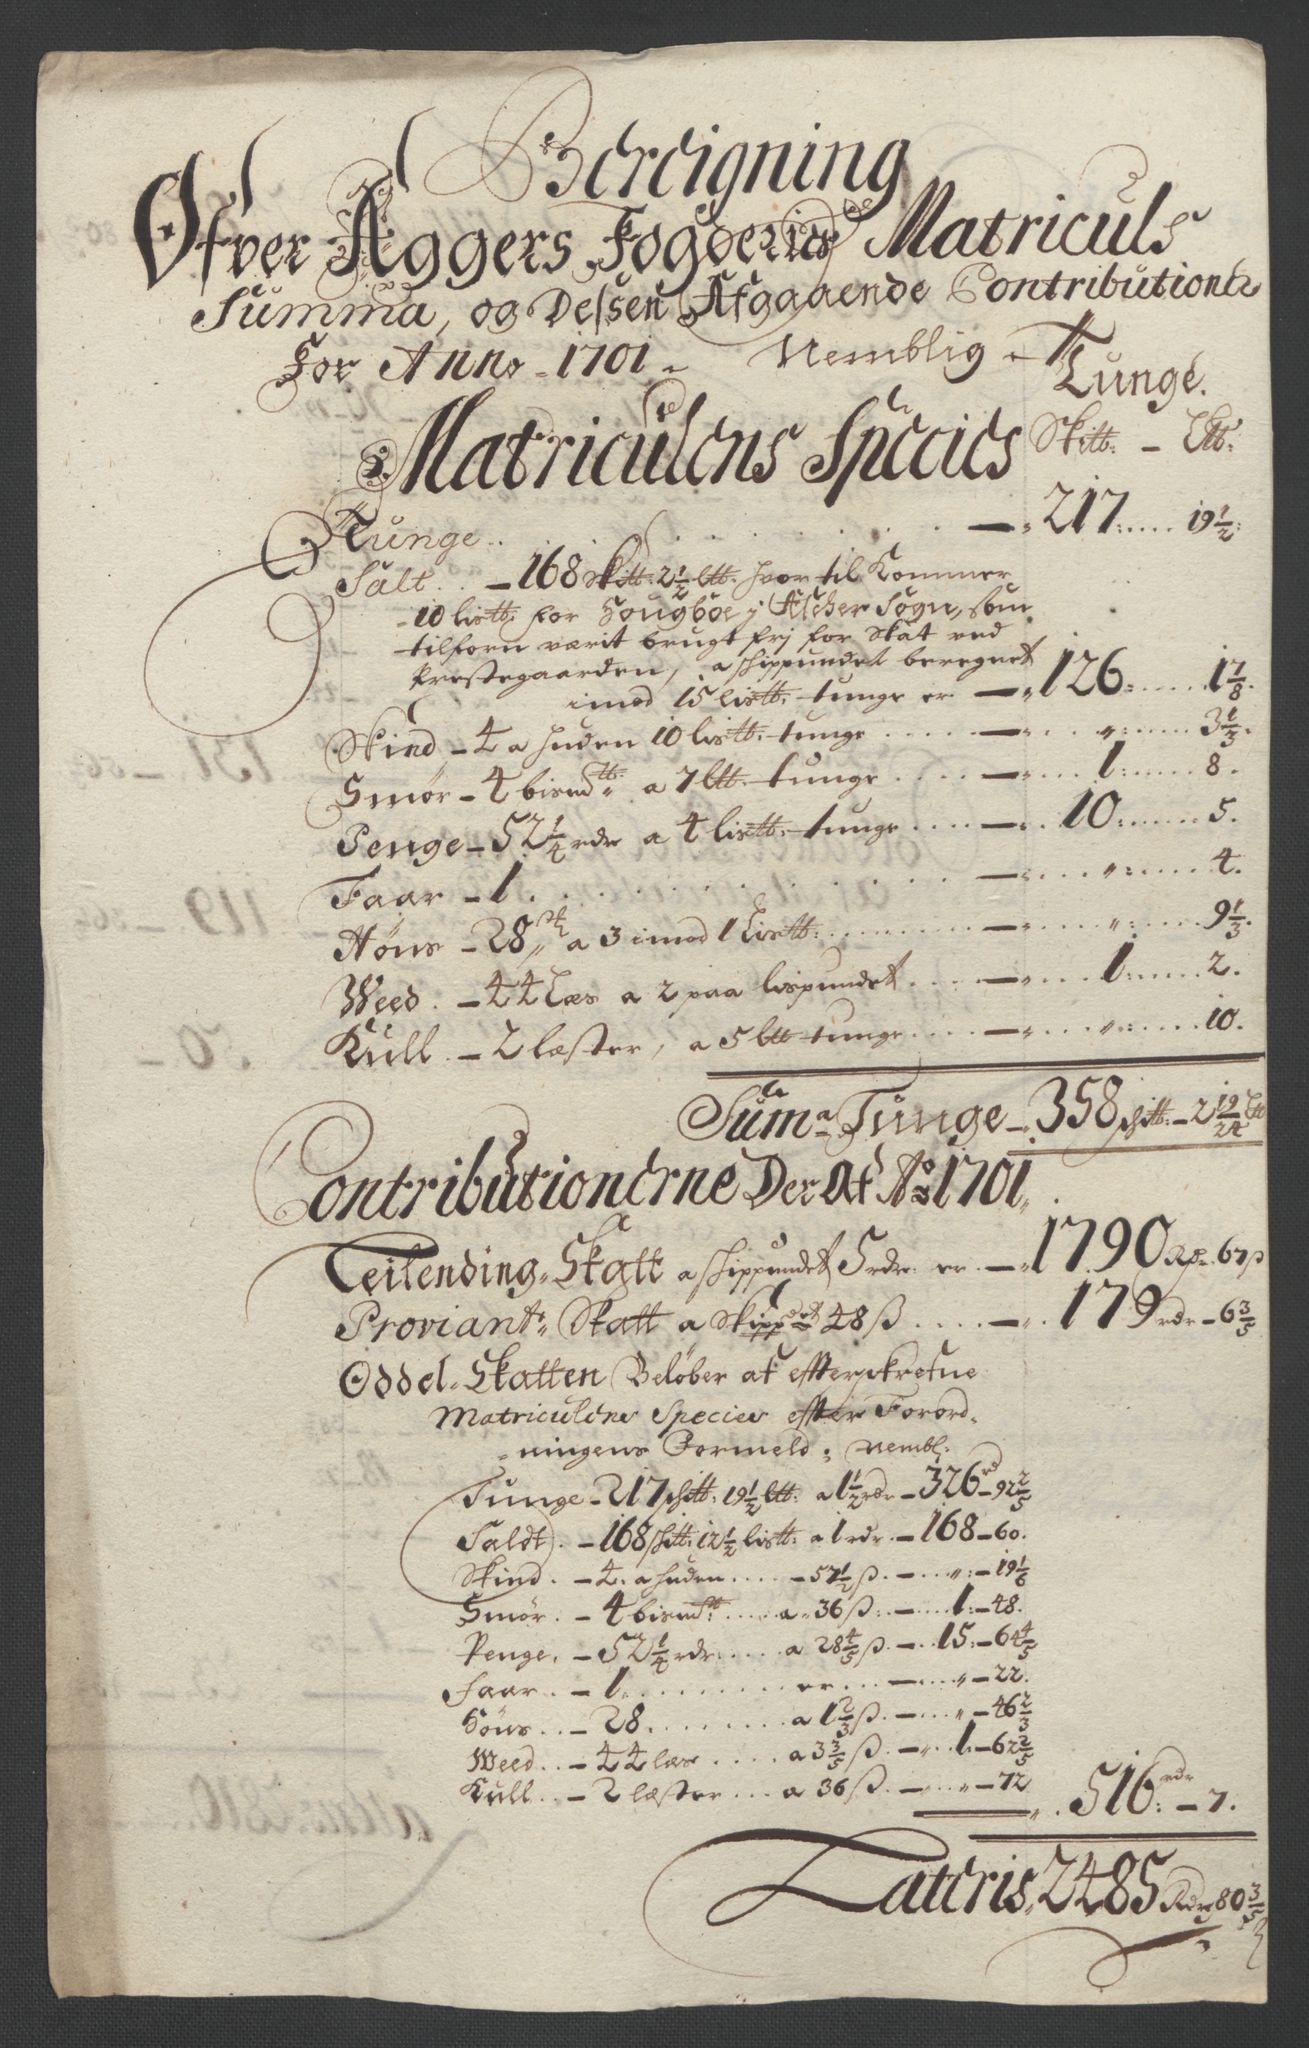 Bereigning
Øfver Aggers Fogderies Matriculs
Summa, og Dessen Afgaaende Contributioner
For Anno - 1701 - Nemblig -
Tunge.
Matriculens Species Skitt: - Ltt:
Tunge . . . — 217: . . . 19 1/2:
Salt . . — 168 Skitt: 2 1/2 ltt: hvor til Kommer
- 10 listt: for Hougboe j Ascher Sogn, som
tilforn værit brugt frj for Skat ved
Prestegaarden, a schippundet beregnet
imod 15 listt: tunge er — 126: . . . 1 7/8.
Skind - 4 a huden 10 listt: tunge . . . — „: . . . 3 1/3.
Smør - 4 bismdtt: a 7 ltt: tunge . . . — 1: . . . 8.
Penge - 52 1/4 rdr a 4 listt: tunge . . . — 10: . . . 5.
Faar - 1 . . . — „: . . . 4.
Høns - 28 st: a 3 imod 1 Listt: . . . — „: . . . 9 1/3
Weed . - 44 Læs a 2 paa lispundet . . . — 1: . . . 2.
Kull . - 2 læster, a 5 ltt tunge . . . — „: . . . 10.
Suma Tunge - 358 schitt: - 2 19/24 Ltt
Contributionerne Der af Ao 1701.
Leilending-Skatt a schippundet 5 rdr. er — 1790 Rdr - 67 ß
Proviant-Skatt a Skippdet 48 ß . . . — 179 rdr - 6 3/5
Oddel-Skatten Beløber af effterskrefne
Matriculens Species effter Forord-
-ningens Formeld; nembl:
Tunge - 217 schitt: 19 1/2 ltt: a 1 1/2 rdr - 326 rd - 92 2/5
Saldt . - 168 schitt: 12 1/2 listt: a 1 rdr - 168 - 60.
Skind . - 4. a huden . . . - 57 1/2 ß. - „: - 19 1/6
Smør . - 4 bismdt: . . . a 36 ß: - 1: - 48.
Penge . - 52 1/4 rdr . . . a 28 4/5 ß - 15: - 64 4/5
Faar . - 1 . . . er . . - „ - 22.
Høns . . - 28 . . . a 1 2/3 ß. - „ - 46 2/3
Weed . . - 44 læs . . . a 3 3/5 ß. - 1 - 62 2/5
Kull . . - 2 læster . . . a 36 ß - „ - 72
516 rdr: - 7.
Lateris, 2485 Rdr 80 3/5 ß